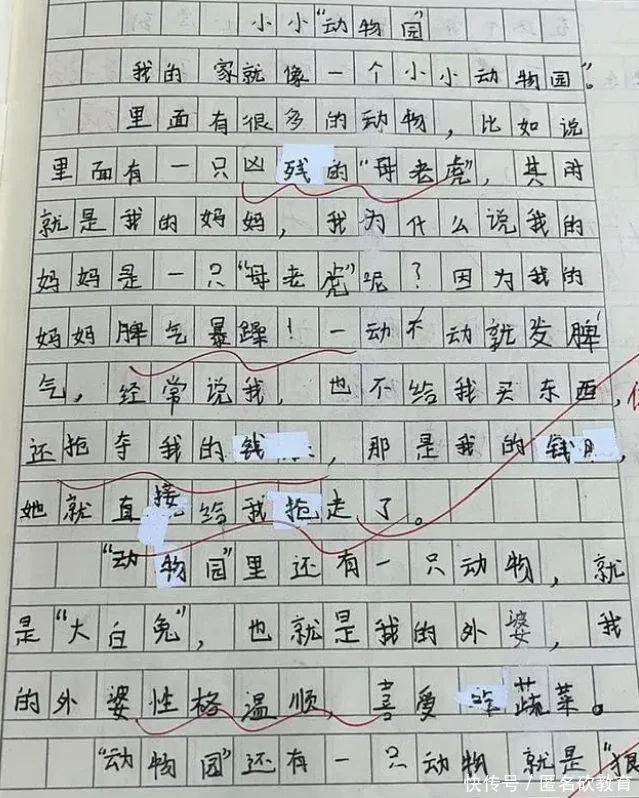 小小“动物园”
我的家就像一个小小动物园”。
里面有很多的动物，比如说
里面有一只凶残的“母老虎”，其时
就是我的妈妈，我为什么说我的
妈妈是一只“母老虎”呢？因为我的
妈妈脾气暴躁！一动不动就发脾
气，经常说我，也不给我买东西，
还抢夺我的钱，那是我的钱，
她就直接给我抢走了。
“动物园”里还有一只动物，就
是“大白兔”，也就是我的外婆，我
的外婆性格温顺，喜爱吃蔬菜。
“动物园”还有一只动物 就是“狼
快传号 / 匿名砍教育